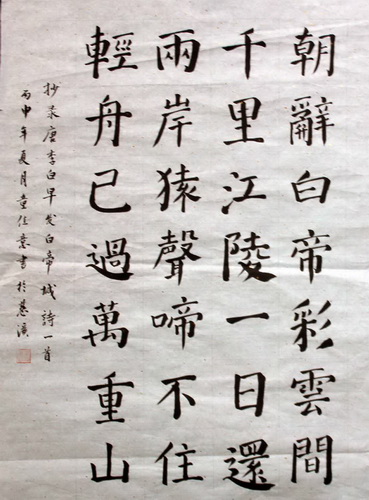 朝辭白帝彩雲間
千里江陵一日還
兩岸猿聲啼不住
輕舟已過萬重山
抄录唐李白早发白帝城詩一首
丙申年夏月童佳意書於慈溪